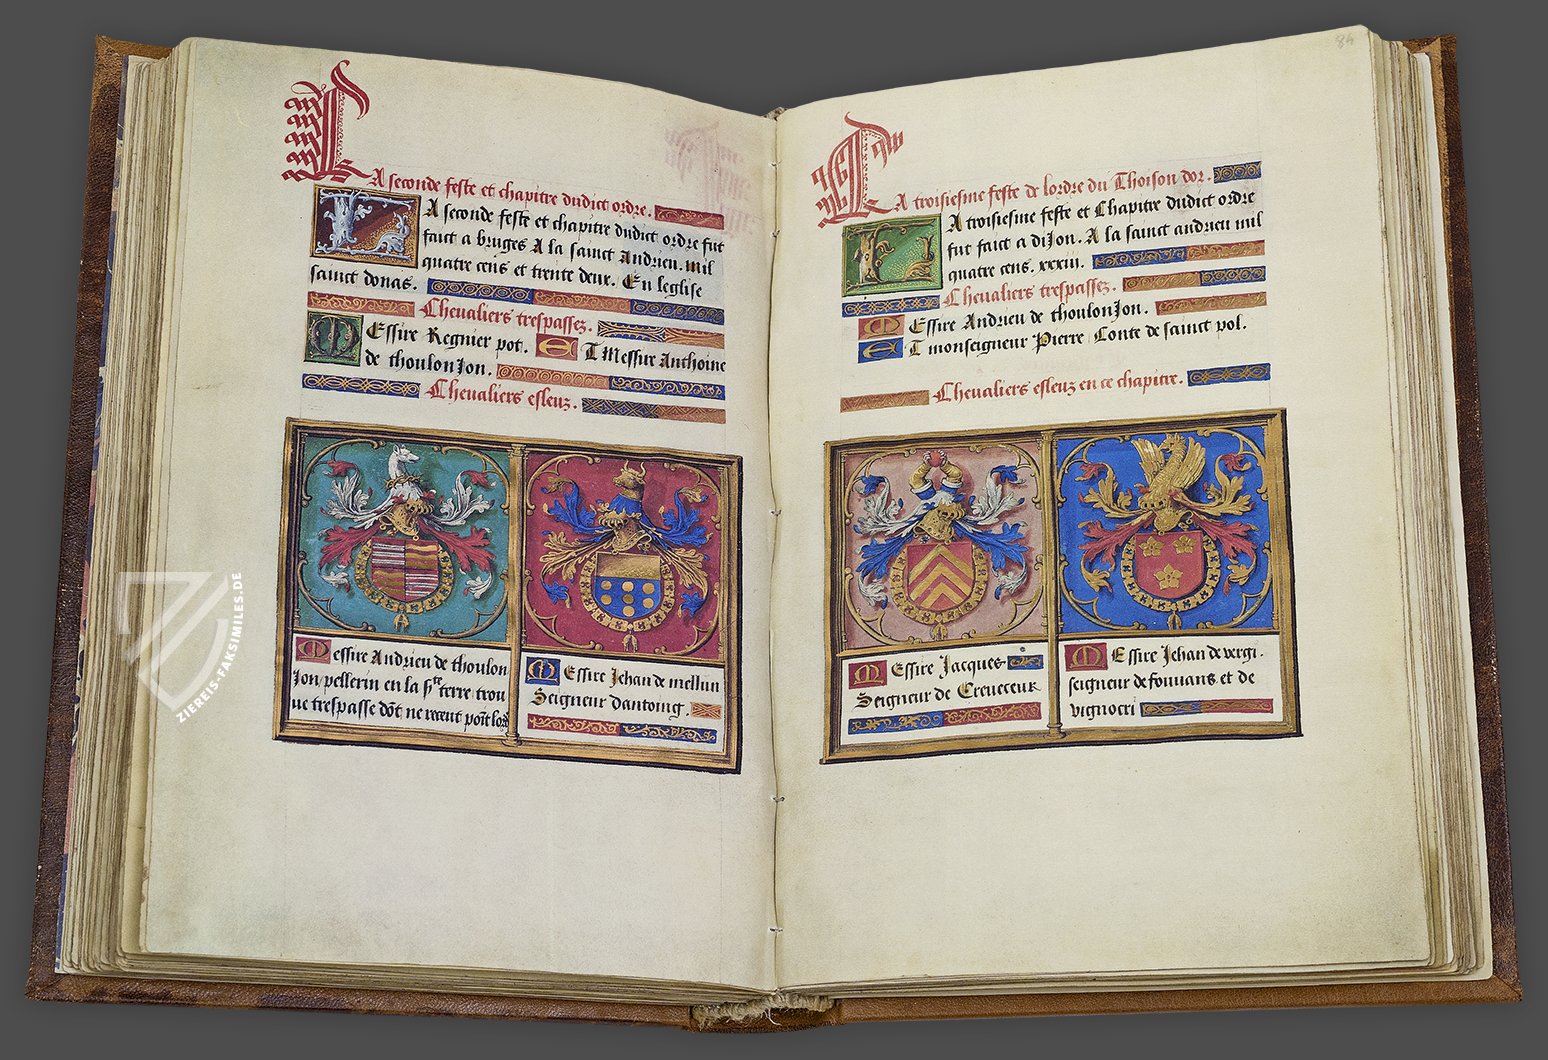 LA seconde feste et chapitre dudict ordre.
LA seconde feste et chapitre dudict ordre fut
faict a bruges A la sainct Andrieu. mil
quatre cens et trente deux. En leglise
sainct donas.
Cheualiers trespassez.
MEssire Regnier pot. ET Messire Anthoine
de thoulonJon.
Cheualiers esleuz.
Messire Andrieu de thoulon
Jon pellerin en la ste terre trou
ue trespasse dōt ne receut poīt lord
MEssire Jehan de mellun
Seigneur dantoing.
84
LA troisiesme feste de lordre du Thoison dor.
LA troisiesme feste et Chapitre dudict ordre
fut faict a diJon. A la sainct andrieu mil
quatre cens. xxxiii.
Cheualiers trespassez.
MEssire Andrieu de thoulonJon.
ET monseigneur Pierre Conte de sainct pol.
Cheualiers esleuz en ce chapitre.
MEssire Jacques
Seigneur de Creueceur
MEssire Jehan de vergi.
seigneur de fouuans et de
vignori
ZIEREIS-FAKSIMILES.DE